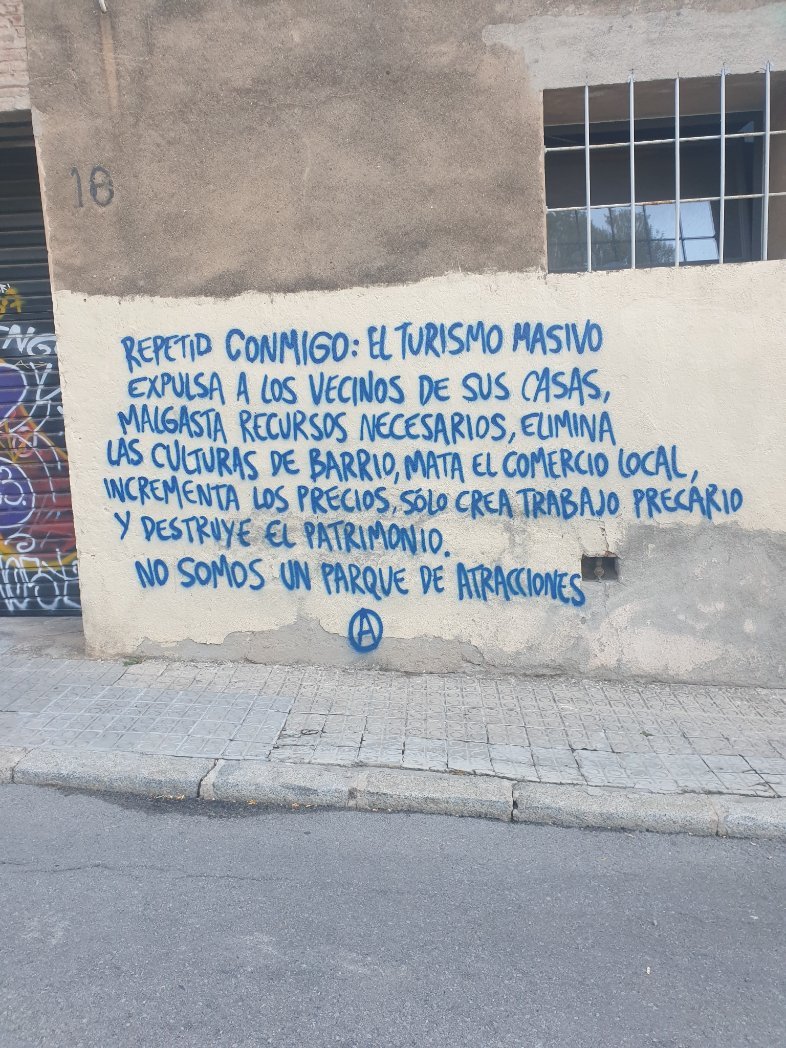 16
REPETID CONMIGO: EL TURISMO MASIVO
EXPULSA A LOS VECINOS DE SUS CASAS,
MALGASTA RECURSOS NECESARIOS, ELIMINA
LAS CULTURAS DE BARRIO, MATA EL COMERCIO LOCAL,
INCREMENTA LOS PRECIOS, SÓLO CREA TRABAJO PRECÁRIO
Y DESTRUYE EL PATRIMONIO.
NO SOMOS UN PARQUE DE ATRACCIONES
A